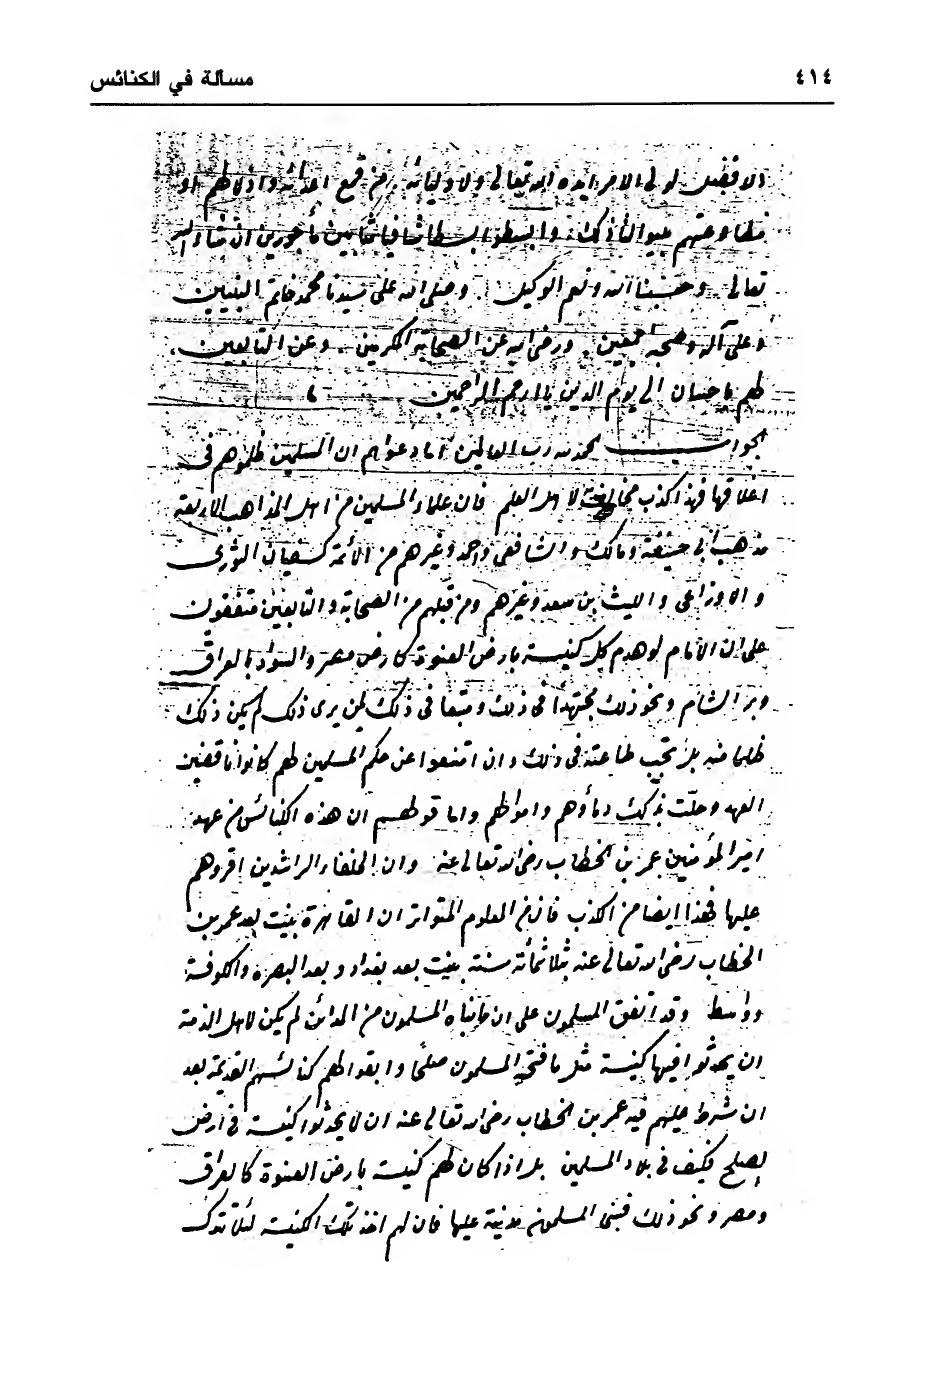 ٤١٤
مسألة في الكنائس
الافضل لولى الامر ايده الله تعالى ولاوليائه من قمع اعدائه واذلالهم او
مطاوعتهم
تعالى وحسبنا الله ونعم الوكيل وصلى الله على سيدنا محمد خاتم النبيين
وعلى آله وصحبه اجمعين ورضى الله عن الصحابة المكرمين وعن التابعين
لهم باحسان الى يوم الدين يا ارحم الراحمين
الجواب الحمد لله رب العالمين أما دعواهم ان المسلمين ظلموهم في
اغلاقها فهذا كذب مخالف لاهل العلم فان علماء المسلمين من اهل المذاهب الاربعة
مذهب أبي حنيفة ومالك والشافعى واحمد وغيرهم من الأئمة كسفيان الثورى
والاوزاعى والليث بن سعد وغيرهم ومن قبلهم من الصحابة والتابعين متفقون
على ان الأمام لو هدم كل كنيسة بارض العنوة كارض مصر والسواد بالعراق
وبر الشام ونحو ذلك مجتهدا في ذلك ومتبعا في ذلك لمن يرى ذلك لم يكن ذلك
ظلما منه بل تجب طاعته في ذلك وان امتنعوا عن حكم المسلمين لهم كانوا ناقضين
العهد وحلت بذلك دماؤهم واموالهم واما قولهم ان هذه الكنائس من عهد
امير المؤمنين عمر بن الخطاب رضى الله تعالى عنه وان الخلفاء الراشدين اقروهم
عليها فهذا ايضا من الكذب فان من المعلوم المتواتر ان القاهرة بنيت بعد عمر بن
الخطاب رضى الله تعالى عنه بثلاثمائة سنة بنيت بعد بغداد وبعد البصرة والكوفة
وواسط وقد اتفق المسلمون على ان ما بناه المسلمون من المدائن لم يكن لاهل الذمة
ان يحدثوا فيها كنيسة مثل ما فتحه المسلمون صلحا وابقوا لهم كنائسهم القديمة بعد
ان شرط عليهم فيه عمر بن الخطاب رضى الله تعالى عنه ان لا يحدثوا كنيسة في ارض
الصلح فكيف في بلاد المسلمين بل اذا كان لهم كنيسة بارض العنوة كالعراق
ومصر ونحو ذلك فبنى المسلمون مدينة عليها فان لهم اخذ تلك الكنيسة لئلا تترك